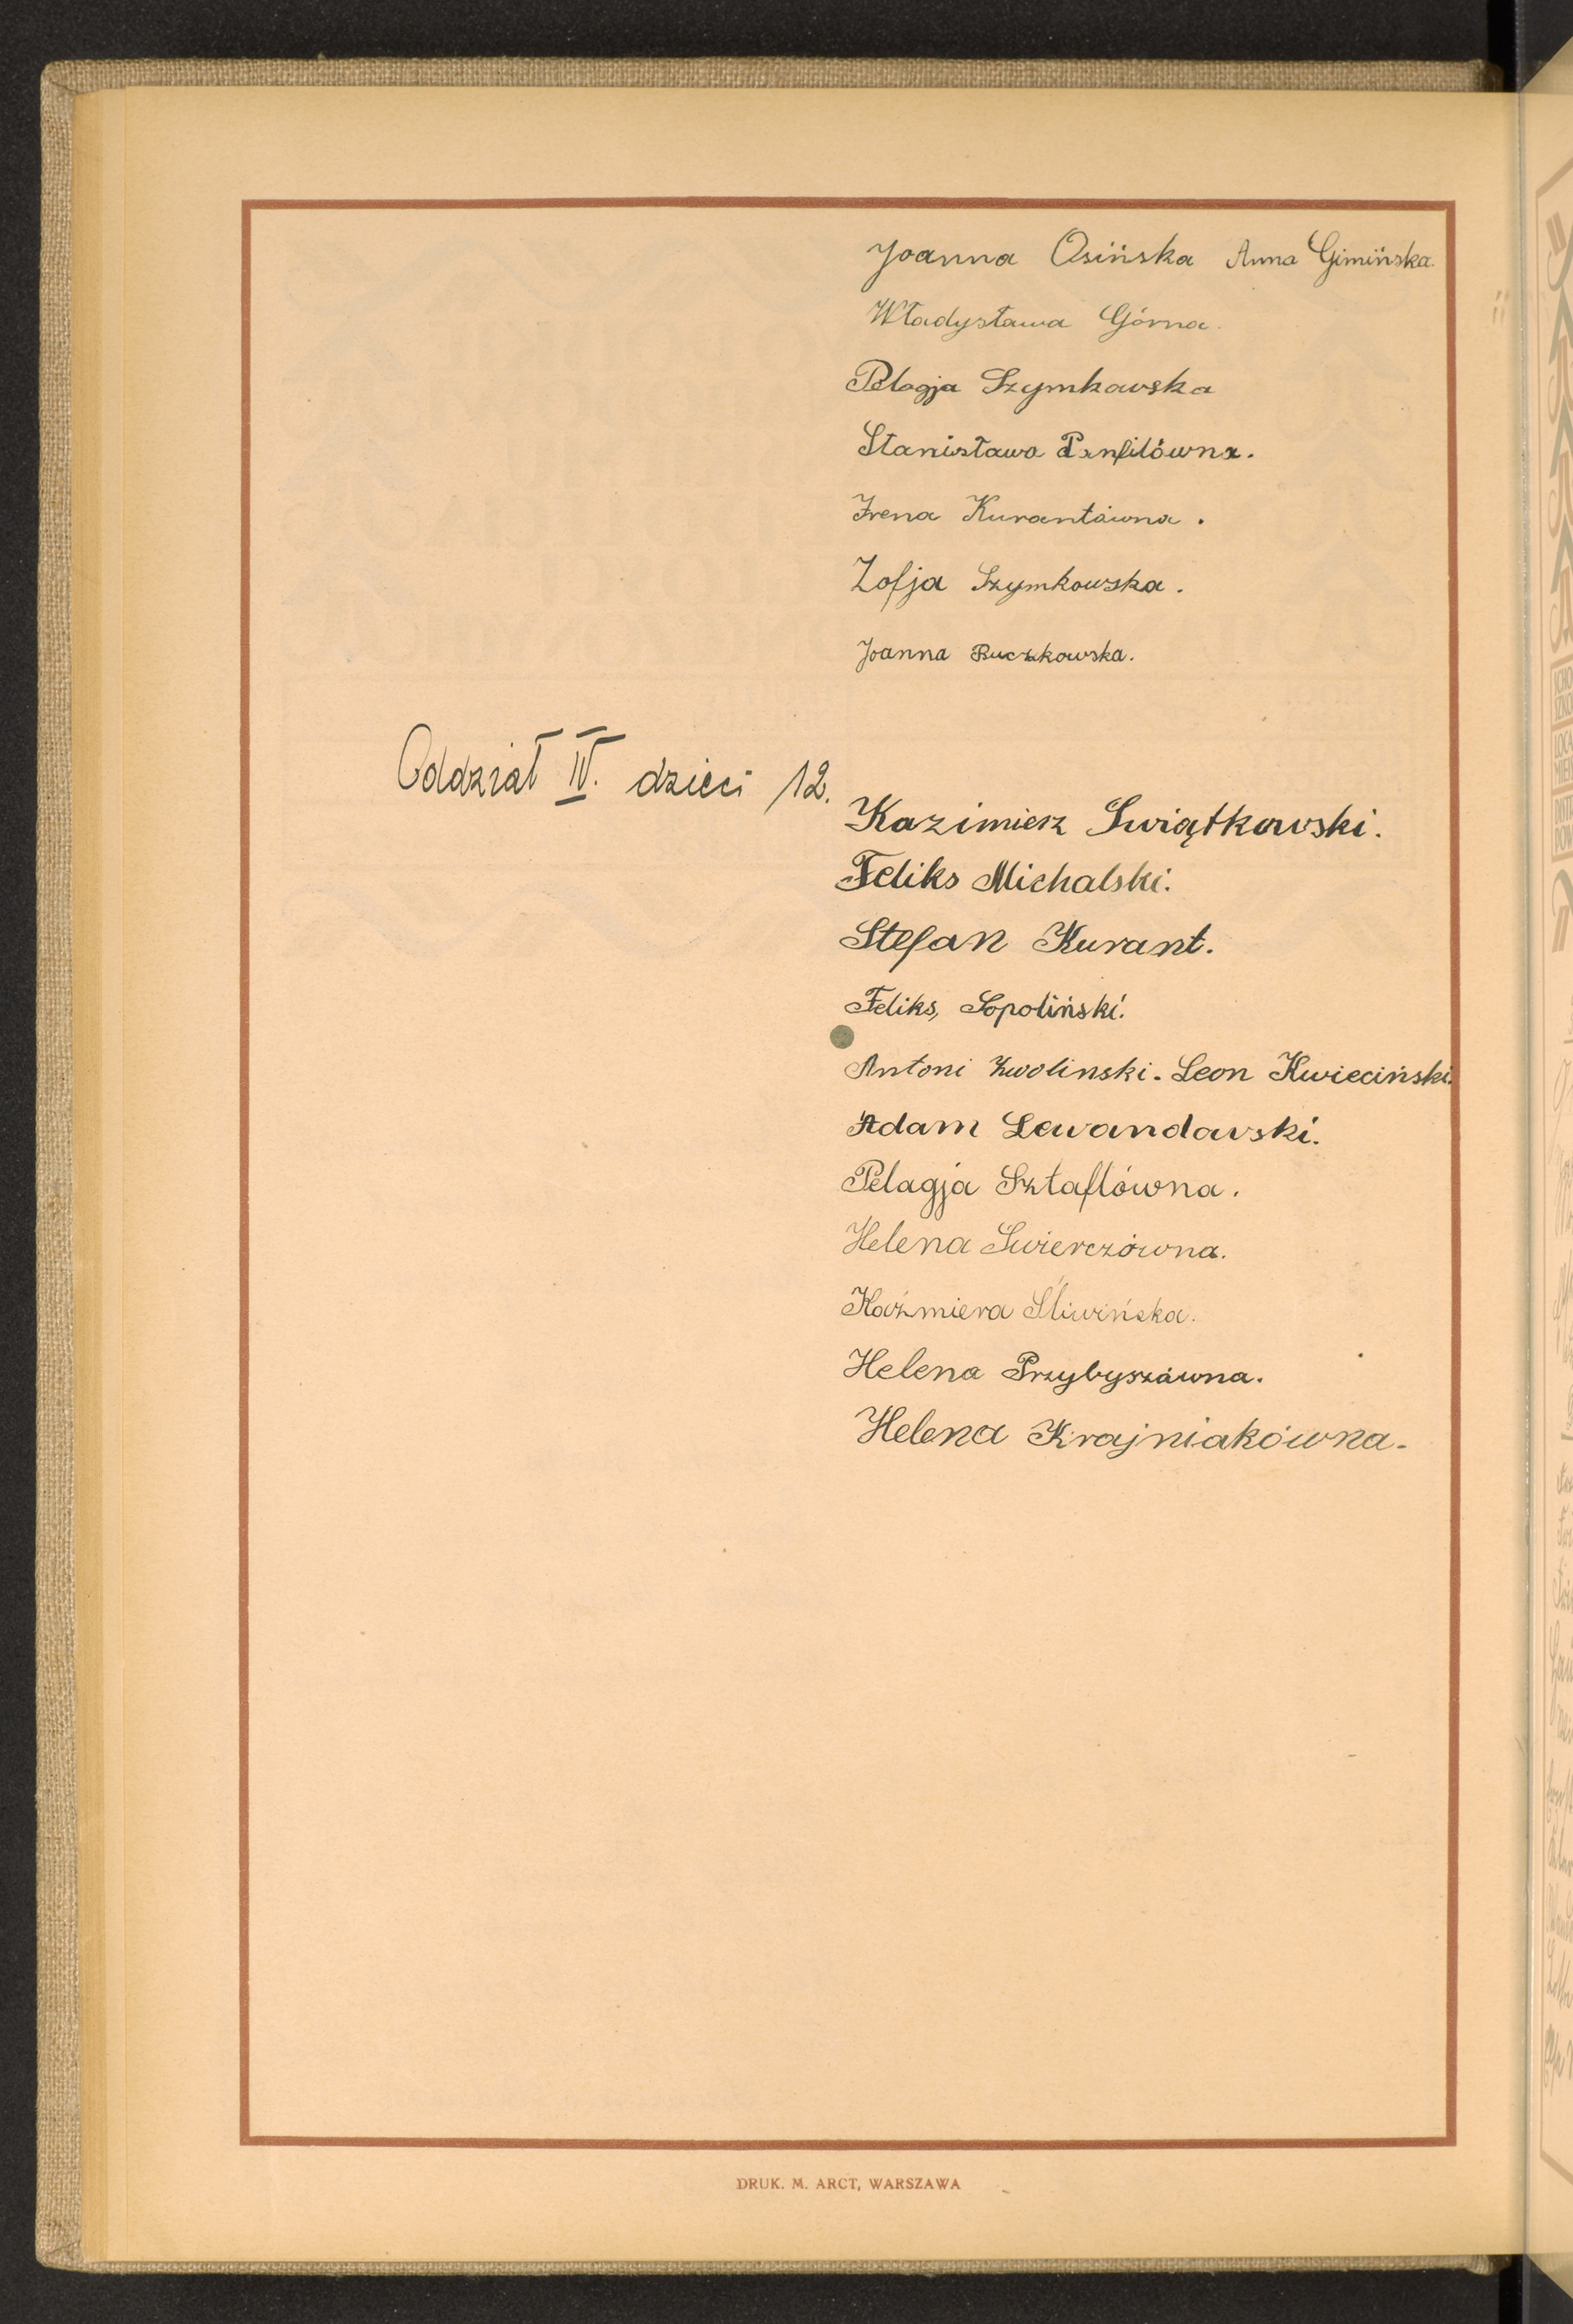 Joanna Osińska Anna Gimińska.
Władysława Górna.
Pelagja Szymkowska
Stanisława Panfilówna.
Irena Kurantówna.
Zofja Szymkowska.
Joanna Ruczkowska.
Oddział IV. dzieci 12.
Kazimierz Swiątkowski.
Feliks Michalski.
Stefan Kurant.
Feliks, Sopoliński.
Antoni Zwolinski. Leon Kwieciński.
Adam Lewandowski.
Pelagja Sztaflówna.
Helena Swierczówna.
Kaźmiera Śliwińska.
Helena Przybyszówna.
Helena Krajniakówna.
DRUK. M. ARCT, WARSZAWA